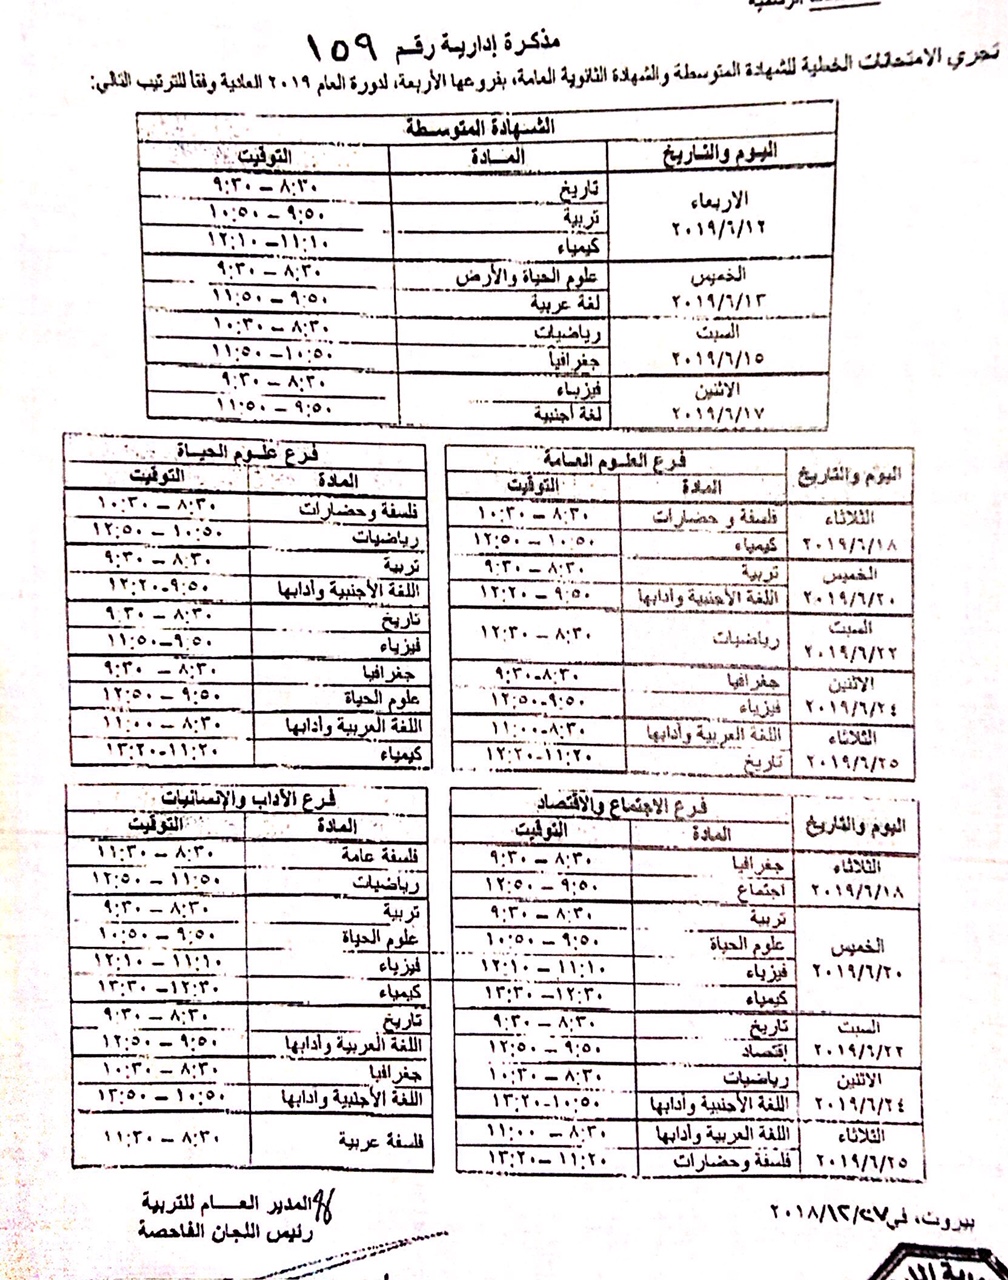 مذكرة إدارية رقم ١٥٩
تجري الامتحانات الخطية للشهادة المتوسطة والشهادة الثانوية العامة، بفروعها الأربعة، لدورة العام ٢٠١٩ العادية وفقاً للترتيب التالي:
الشهادة المتوسطة
اليوم والتاريخ المادة التوقيت
الاربعاء ٢٠١٩/٦/١٢
تاريخ ٨:٣٠ – ٩:٣٠
تربية ٩:٥٠ – ١٠:٥٠
كيمياء ١١:١٠ – ١٢:١٠
الخميس ٢٠١٩/٦/١٣
علوم الحياة والأرض ٨:٣٠ – ٩:٣٠
لغة عربية ٩:٥٠ – ١١:٥٠
السبت ٢٠١٩/٦/١٥
رياضيات ٨:٣٠ – ١٠:٣٠
جغرافيا ١٠:٥٠ – ١١:٥٠
الاثنين ٢٠١٩/٦/١٧
فيزياء ٨:٣٠ – ٩:٣٠
لغة أجنبية ٩:٥٠ – ١١:٥٠
اليوم والتاريخ
فرع العلوم العامة
المادة التوقيت
الثلاثاء ٢٠١٩/٦/١٨
فلسفة و حضارات ٨:٣٠ – ١٠:٣٠
كيمياء ١٠:٥٠ – ١٢:٥٠
الخميس ٢٠١٩/٦/٢٠
تربية ٨:٣٠ – ٩:٣٠
اللغة الأجنبية وأدابها ٩:٥٠ – ١٢:٢٠
السبت ٢٠١٩/٦/٢٢
رياضيات ٨:٣٠ – ١٢:٣٠
الاثنين ٢٠١٩/٦/٢٤
جغرافيا ٨:٣٠-٩:٣٠
فيزياء ٩:٥٠-١٢:٥٠
الثلاثاء ٢٠١٩/٦/٢٥
اللغة العربية وأدابها ٨:٣٠-١١:٠٠
تاريخ ١١:٢٠-١٢:٢٠
فرع علوم الحياة
المادة التوقيت
فلسفة وحضارات ٨:٣٠ – ١٠:٣٠
رياضيات ١٠:٥٠ – ١٢:٥٠
تربية ٨:٣٠ – ٩:٣٠
اللغة الأجنبية وأدابها ٩:٥٠-١٢:٢٠
تاريخ ٨:٣٠ – ٩:٣٠
فيزياء ٩:٥٠-١١:٥٠
جغرافيا ٨:٣٠ – ٩:٣٠
علوم الحياة ٩:٥٠ – ١٢:٥٠
اللغة العربية وأدابها ٨:٣٠ – ١١:٠٠
كيمياء ١١:٢٠-١٣:٢٠
اليوم والتاريخ
فرع الاجتماع والاقتصاد
المادة التوقيت
الثلاثاء ٢٠١٩/٦/١٨
جغرافيا ٨:٣٠ – ٩:٣٠
اجتماع ٩:٥٠ – ١٢:٥٠
الخميس ٢٠١٩/٦/٢٠
تربية ٨:٣٠ – ٩:٣٠
علوم الحياة ٩:٥٠ – ١٠:٥٠
فيزياء ١١:١٠ – ١٢:١٠
كيمياء ١٢:٣٠ – ١٣:٣٠
السبت ٢٠١٩/٦/٢٢
تاريخ ٨:٣٠ – ٩:٣٠
إقتصاد ٩:٥٠ – ١٢:٥٠
الاثنين ٢٠١٩/٦/٢٤
رياضيات ٨:٣٠ – ١٠:٣٠
اللغة الأجنبية وأدابها ١٠:٥٠-١٣:٢٠
الثلاثاء ٢٠١٩/٦/٢٥
اللغة العربية وأدابها ٨:٣٠ – ١١:٠٠
فلسفة وحضارات ١١:٢٠ – ١٣:٢٠
فرع الأداب والإنسانيات
المادة التوقيت
فلسفة عامة ٨:٣٠ – ١١:٣٠
رياضيات ١١:٥٠ – ١٢:٥٠
تربية ٨:٣٠ – ٩:٣٠
علوم الحياة ٩:٥٠ – ١٠:٥٠
فيزياء ١١:١٠ – ١٢:١٠
كيمياء ١٢:٣٠ – ١٣:٣٠
تاريخ ٨:٣٠ – ٩:٣٠
اللغة العربية وأدابها ٩:٥٠ – ١٢:٥٠
جغرافيا ٨:٣٠ – ١٠:٣٠
اللغة الأجنبية وأدابها ١٠:٥٠ – ١٣:٥٠
فلسفة عربية ٨:٣٠ – ١١:٣٠
بيروت، في ٢٠١٨/١٢/٢٧
المدير العام للتربية
رئيس اللجان الفاحصة